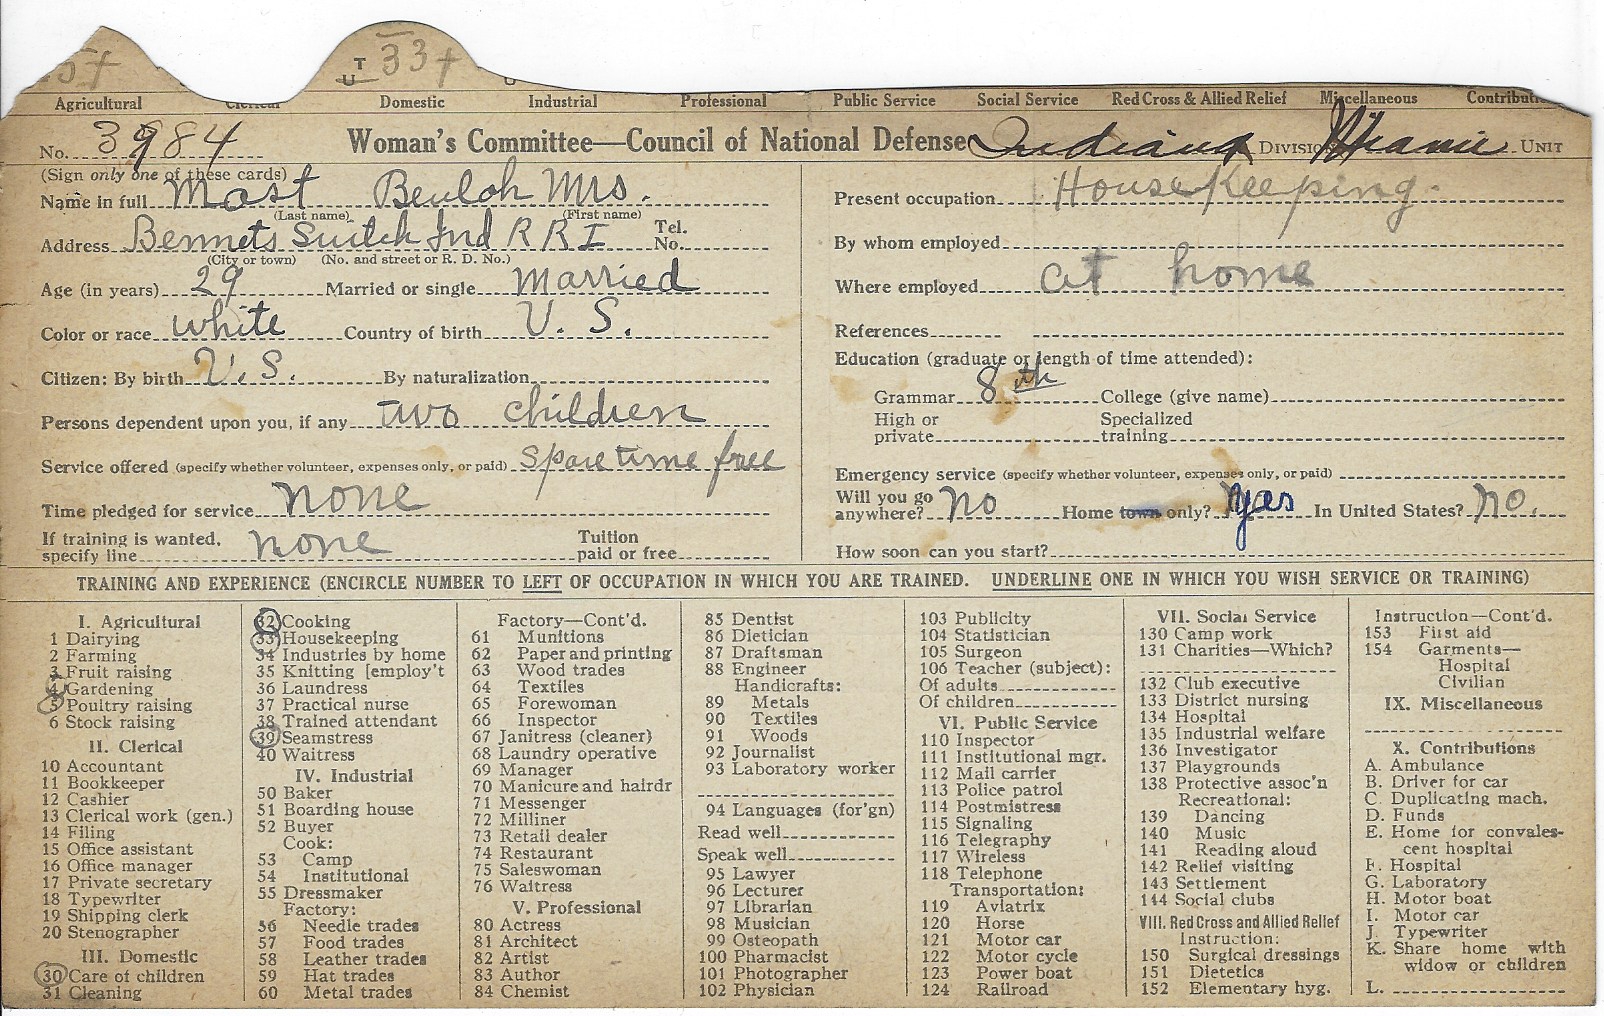 5+
T
U
33+
Agricultural Clerical Domestic Industrial Professional Public Service Social Service Red Cross & Allied Relief Miscellaneous Contributions
No. 3984 Woman's Committee—Council of National Defense Indiana Division Miami Unit
(Sign only one of these cards)
Name in full Mast Beulah Mrs.
(Last name) (First name)
Address Bennets Switch Ind R R I Tel. No.
(City or town) (No. and street or R. D. No.)
Age (in years) 29 Married or single Married
Color or race white Country of birth U. S.
Citizen: By birth U. S. By naturalization
Persons dependent upon you, if any two children
Service offered (specify whether volunteer, expenses only, or paid) spare time free
Time pledged for service none
If training is wanted, specify line none Tuition paid or free
Present occupation House Keeping.
By whom employed
Where employed at home
References
Education (graduate or length of time attended):
Grammar 8th College (give name)
High or private Specialized training
Emergency service (specify whether volunteer, expenses only, or paid)
Will you go anywhere? no Home town only? yes In United States? no.
How soon can you start?
TRAINING AND EXPERIENCE (ENCIRCLE NUMBER TO LEFT OF OCCUPATION IN WHICH YOU ARE TRAINED. UNDERLINE ONE IN WHICH YOU WISH SERVICE OR TRAINING)
I. Agricultural
1 Dairying
2 Farming
3 Fruit raising
4 Gardening
5 Poultry raising
6 Stock raising
II. Clerical
10 Accountant
11 Bookkeeper
12 Cashier
13 Clerical work (gen.)
14 Filing
15 Office assistant
16 Office manager
17 Private secretary
18 Typewriter
19 Shipping clerk
20 Stenographer
III. Domestic
30 Care of children
31 Cleaning
32 Cooking
33 Housekeeping
34 Industries by home
35 Knitting [employ't
36 Laundress
37 Practical nurse
38 Trained attendant
39 Seamstress
40 Waitress
IV. Industrial
50 Baker
51 Boarding house
52 Buyer
Cook:
53 Camp
54 Institutional
55 Dressmaker
Factory:
56 Needle trades
57 Food trades
58 Leather trades
59 Hat trades
60 Metal trades
Factory—Cont'd.
61 Munitions
62 Paper and printing
63 Wood trades
64 Textiles
65 Forewoman
66 Inspector
67 Janitress (cleaner)
68 Laundry operative
69 Manager
70 Manicure and hairdr
71 Messenger
72 Milliner
73 Retail dealer
74 Restaurant
75 Saleswoman
76 Waitress
V. Professional
80 Actress
81 Architect
82 Artist
83 Author
84 Chemist
85 Dentist
86 Dietician
87 Draftsman
88 Engineer
Handicrafts:
89 Metals
90 Textiles
91 Woods
92 Journalist
93 Laboratory worker
94 Languages (for'gn)
Read well
Speak well
95 Lawyer
96 Lecturer
97 Librarian
98 Musician
99 Osteopath
100 Pharmacist
101 Photographer
102 Physician
103 Publicity
104 Statistician
105 Surgeon
106 Teacher (subject):
Of adults
Of children
VI. Public Service
110 Inspector
111 Institutional mgr.
112 Mail carrier
113 Police patrol
114 Postmistress
115 Signaling
116 Telegraphy
117 Wireless
118 Telephone
Transportation:
119 Aviatrix
120 Horse
121 Motor car
122 Motor cycle
123 Power boat
124 Railroad
VII. Social Service
130 Camp work
131 Charities—Which?
132 Club executive
133 District nursing
134 Hospital
135 Industrial welfare
136 Investigator
137 Playgrounds
138 Protective assoc'n
Recreational:
139 Dancing
140 Music
141 Reading aloud
142 Relief visiting
143 Settlement
144 Social clubs
VIII. Red Cross and Allied Relief
Instruction:
150 Surgical dressings
151 Dietetics
152 Elementary hyg.
Instruction—Cont'd.
153 First aid
154 Garments—
Hospital
Civilian
IX. Miscellaneous
X. Contributions
A. Ambulance
B. Driver for car
C. Duplicating mach.
D. Funds
E. Home for convales-
cent hospital
F. Hospital
G. Laboratory
H. Motor boat
I. Motor car
J. Typewriter
K. Share home with
widow or children
L.